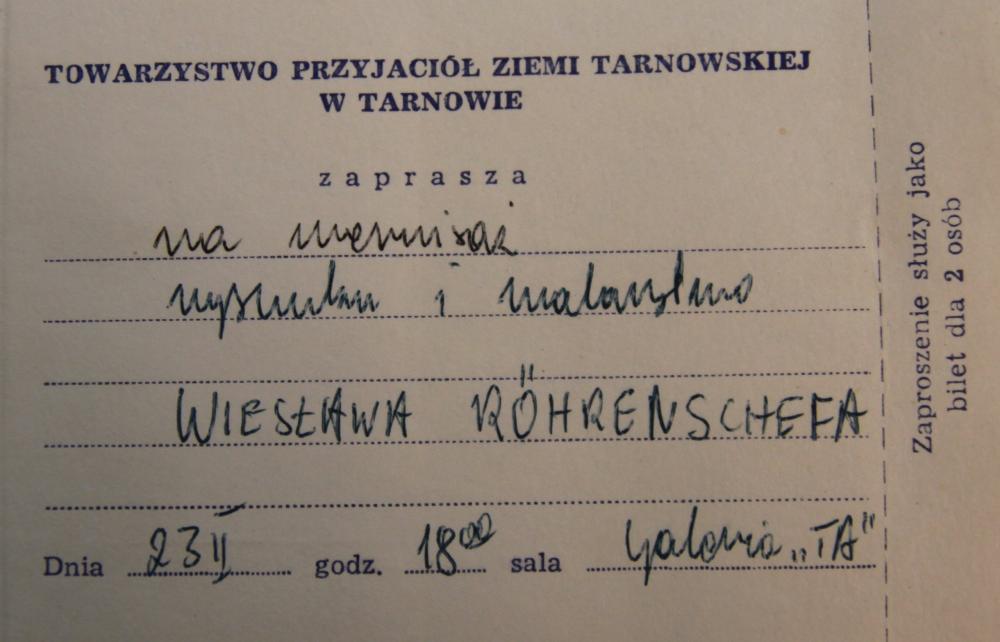 TOWARZYSTWO PRZYJACIÓŁ ZIEMI TARNOWSKIEJ
W TARNOWIE
zaprasza
na wernisaż
rysunku i malarstwa
WIESŁAWA RÖHRENSCHEFA
Dnia 23 II godz. 18⁰⁰ sala Galeria „TA"
Zaproszenie służy jako
bilet dla 2 osób